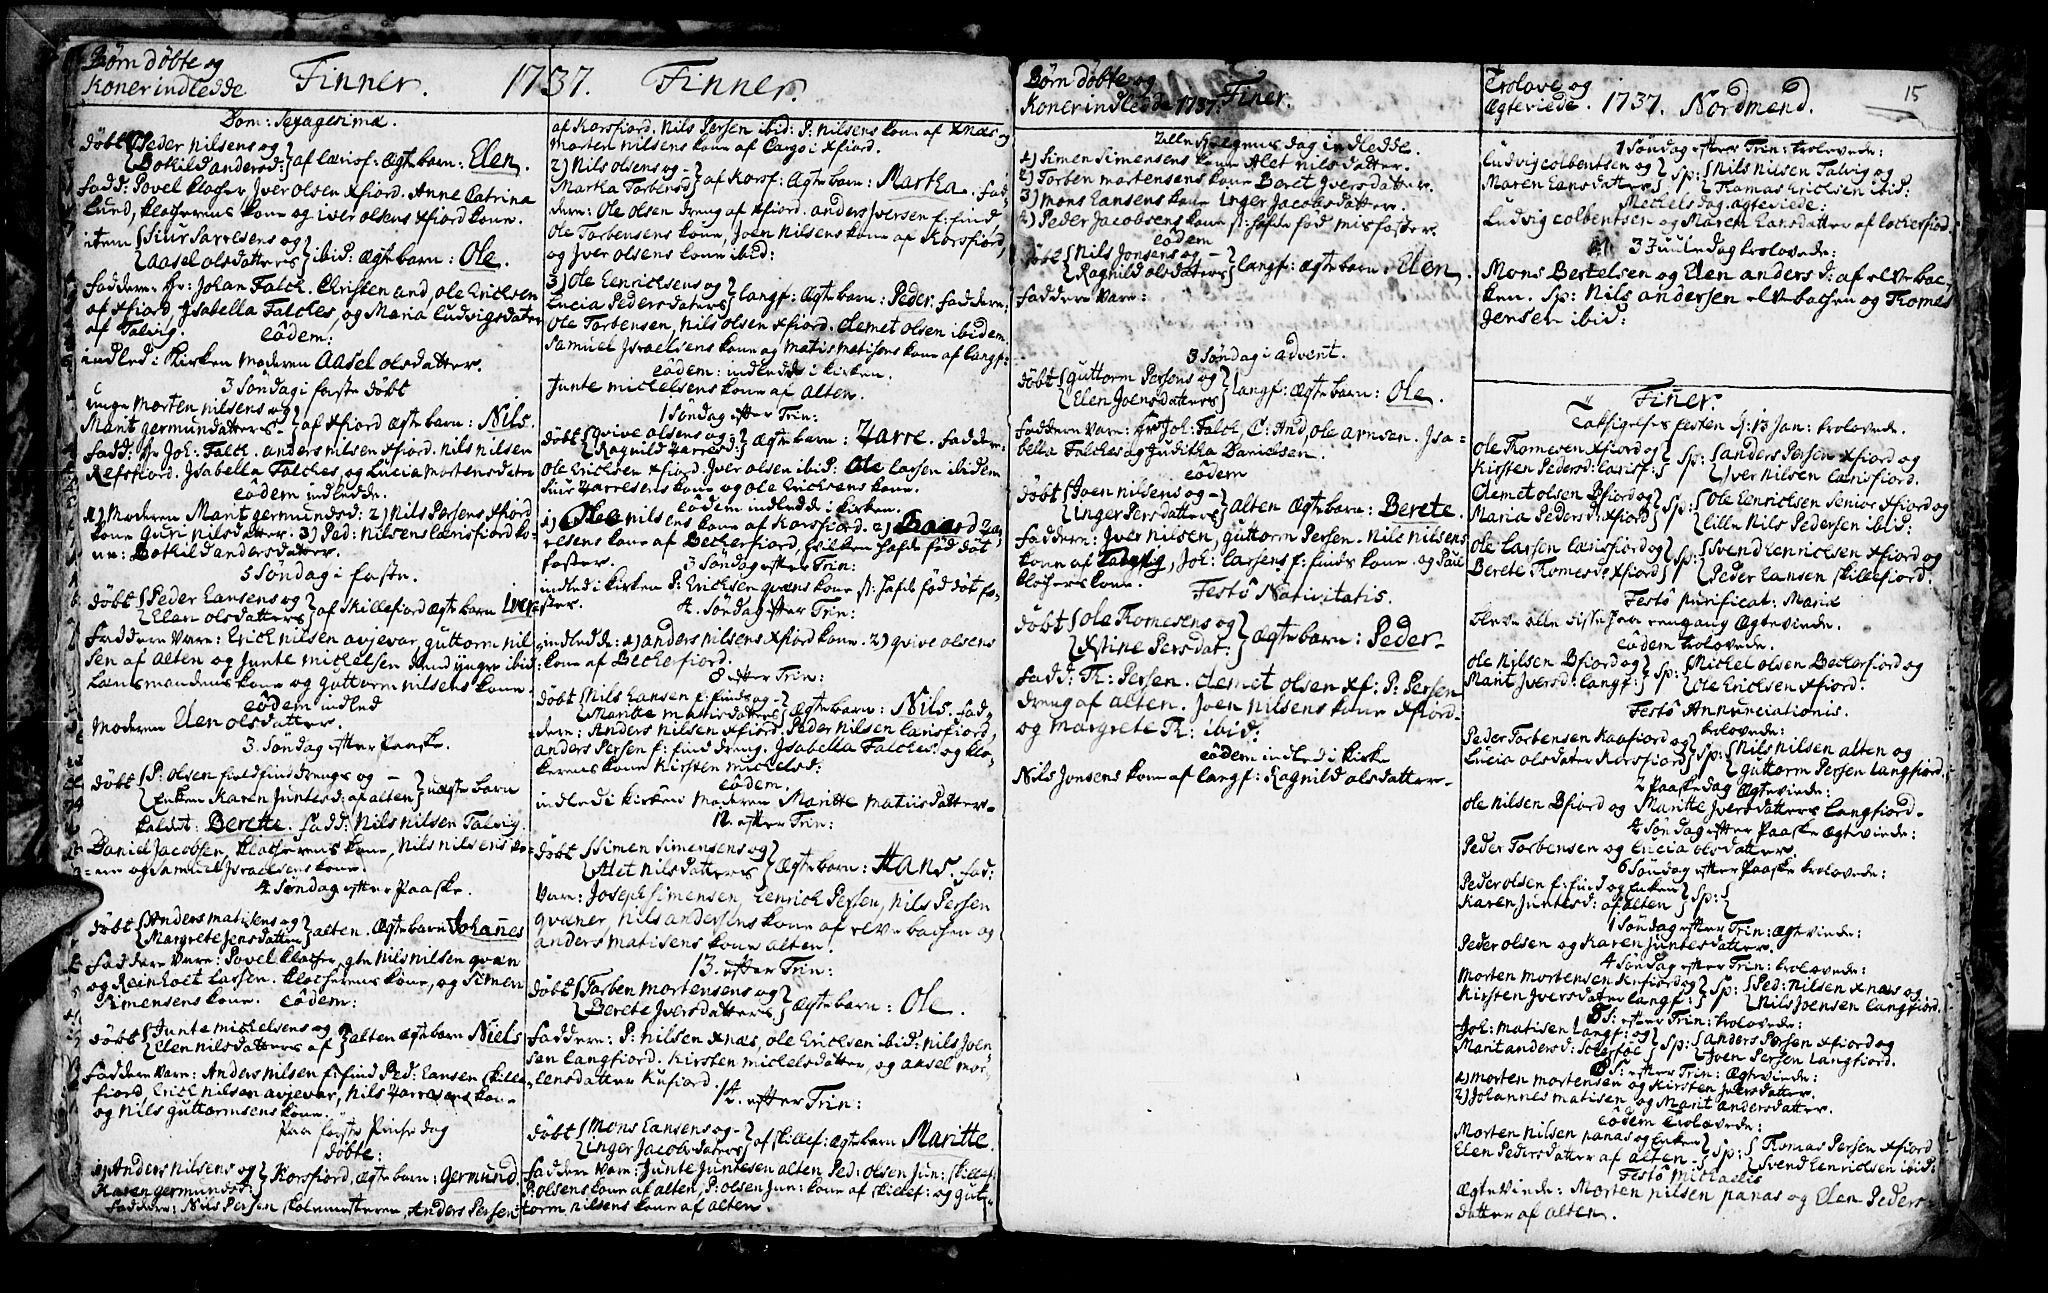 Børn døbte og
Koner indledde Finner. 1737. Finner.
Dom: Sexagesimæ.
døbt Peder Nilsens og
Bohild andersd: af Lærisf: Ægte barn: Elen.
fadd: Povel klocher, Iver olsen xfiord. Anne Catrina
Lund, klocherens kone og Iver olsens xfiord kone.
item Siur Sarresens og
Aasel olsdatters ibid: Ægte barn: Ole.
faddere: Hr: Johan Falch. Christen And, ole Erichsen
af xfiord, Isabella Falches, og Maria Ludvigsdater
af Talvig.
eôdem:
indled i Kirken Moderen Aasel olsdatter.
3 Søndag i faste døbt
unge Morten nilsens og
Marit germundatters af xfiord Ægte barn: Nils.
fadd: Hr Joh. Falch. anders nilsen xfiord. Nils nilsen
Refsfiord. Isabella Falches, og Lucia Mortensdatter
eôdem indledde.
1) Moderen Marit germundsd: 2) Nils Persens xfiord
kone Guri nilsdatter. 3) Ped: Nilsens Lærisfiord ko-
ne: Bothild andersdatter.
5 Søndag i faste.
døbt Peder Hansens og
Elen olsdatters af Skillefiord Ægte barn Iver
faddere Vare: Erich nilsen avjevar, guttorm nil-
sen af Alten og Junte michelsen dend yngre ibid
Lænsmandens kone og guttorm nilsens kone.
eôdem indled
Moderen Elen olsdatter.
3. Søndag efter Paaske.
døbt P: olsen fieldfinddrengs og
Enken Karen Juntesd: af alten uægte barn
kaldet: Berette. fadd: Nils nilsen Talvig.
Daniel Jacobsen, klocherens kone, Nils nilsens ko-
ne og Samuel Israelsens kone.
4 Søndag efter Paaske.
døbt Anders matisens og
Margrete Jensdatters alten. Ægte barn Johanes
faddere Vare: Povel klocher, gle nils nilsen qvæn
og Reinholt Larsen. klocherens kone, og Simen
Simensens kone. eôdem:
døbt Junte michelsens og
Elen nilsdatters af alten Ægte barn Niels
faddere Vare: Anders nilsen f: find Ped: Hansen Skille-
fiord, Erich nilsen avjevar, Nils Zarresens kone
og nils guttormsens kone.
Paa første Pinse dag
døbte:
1) Anders nilsens og
Karen germundsd: Korsfiord, Ægte barn: Germund.
faddere: Nils Persen skolemesteren, Anders Persen
af Korsfiord. Nils Persen ibid: P: nilsens kone af xnæs og
Morten nilsens kone af Largo i xfiord.
2) Nils olsens og
Martha Torbensd: af Korsf: Ægte barn: Martha. fad-
dere: Ole olsen dreng af xfiord. anders Iversen f: find
Ole Torbensens kone, Joen nilsens kone af Korsfiord,
og Iver olsens kone ibid:
3) Ole Henrichsens og
Lucia Pedersdaters langf: Ægte barn: Peder. faddere:
Ole Torbensen, nils olsen xfiord. Clemet olsen ibidem
Samuel Israelsens kone og Matis Matisens kone af Langf:
eôdem: indledde i kirken:
Junte michelsens kone af Alten.
1 Søndag efter Trin:
døbt Qvive olsens og
Ragnild Zarresd: Ægte barn: Zarre. faddere.
Ole Erichsen xfiord. Iver olsen ibid: Ole Larsen ibidem
Siur Zarresens kone og ole Erichsens kone.
eôdem indledde i kirken.
1) Ole nilsens kone af Korsfiord. 2) Baard Za-
resens kone af Beckerfiord, hvilken hafde fød døt
foster. 3 Søndag efter Trin:
indled i kirken P: Erichsen qvæns kone s: hafde fød døt fo-
ster. 4. Søndag efter Trin:
indledde: 1) anders nilsens xfiord kone. 2) qvive olsens
kone af Beckerfiord.
8 efter Trin:
døbt Nils Hansen f: finds og
Maritte matisdatters Ægte barn: Nils. fad-
dere: Anders nilsen xfiord. Peder nilsen Lærisfiord,
anders Persen f: find dreng. Isabella Falches: og klo-
kerens kone Kirsten michelsd:
eôdem.
indled i kirken moderen Maritte matisdatter.
12. efter Trin:
døbt Simen Simensens og
Alet nilsdatters Ægte barn: Hans. fad:
Vare: Joseph Simensen, Henrich Persen, Nils Persen
qvæner, nils andersens kone af elvebachen og
anders matisens kone alten.
13. efter Trin:
døbt Torben mortensens og
Berete Iversdatters. Ægte barn: Ole.
faddere: P: nilsen xnæs, ole Erichsen ibid: nils Joen-
sen Langfiord. Kirsten michelsdatter, og aasel mor-
tensdatter Kufiord.
14. efter Trin:
døbt Mons Hansens og
Inger Jacobsdaters af skillef: Ægte barn Maritte.
faddere Vare: Junte Juntesen alten Ped: olsen Jun: skillef:
P: olsens kone af alten, P: olsen Jun: kone af skillef: og gut-
torm nilsens kone af alten.
Børn døbte og
Koner indledde 1737. Finer.
Alle Helgens dag indledde.
1) Simen Simensens kone Alet nilsdatter.
2) Torben mortensens kone Beret Iversdatter.
3) Mons Hansens kone Inger Jacobsdatter.
4) Peder Jacobsens kone s: hafde fød misfoster.
eôdem
døbt Nils Jonsens og
Ragnild olsdatters langf: Ægte barn: Elen.
faddere Vare:
3 Søndag i advent.
døbt guttorm Persens og
Elen Joensdatters Langf: Ægte barn: Ole.
faddere Vare: Hr Joh. Falch. C: And, ole arnsen. Isa-
bella Falches og Juditha Danielsen.
eôdem
døbt Joen nilsens og
Inger Persdatters alten Ægte barn: Berete.
faddere: Iver nilsen, guttorm Persen. Nils nilsens
kone af Talvig, Joh: Larsens f: finds kone. og Paul
klochers kone.
Festô Nativitatis.
døbt Ole Thomesens og
Kstine Persdat: Ægte barn: Peder
fadd: Th: Persen. Clemet olsen xf: P: Persen
dreng af alten. Joen nilsens kone xfiord
og margrete Th: ibid:
eôdem indled i kirke
Nils Jonsens kone af langf: Ragnild olsdatter
Trolove og
Ægteviede. 1737. Nordmend. 15
1 Søndag efter Trin: trolovede:
Ludvig Colbentsen og
Maren Hansdatter Sp: Nils Nilsen Talvig og
Thomas Erichsen ibid:
Mechelsdag ægteviede:
Ludvig Colbentsen og Maren Hansdatter af Lockerfiord
3 Juuledag trolovede:
Mons Bertelsen og Elen anders d: af elvebac-
ken. Sp: Nils andersen elvebachen og Thomes
Jensen ibid:
Finer.
Tacksigelses festen d: 13 Jan: trolovede.
Ole Thomesen xfiord og
Kirsten Pedersd: Lærisf: Sp: anders Persen xfiord og
Iver Nilsen Lærisfiord.
Clemet olsen Bfiord og
Maria Pedersd: xfiord Sp: Ole Henrichsen Senior xfiord og
Lille Nils Pedersen ibid:
Ole Larsen Lærisfiord og
Berete Thomesd: xfiord Sp: Svend Henrichsen xfiord og
Peder Hansen Skillefiord.
Festô Purificat: Mariæ
bleve alle disse Par eengang Ægtevinde.
eôdem trolovede.
Ole Nilsen Bfiord og
Marit Iversd: langf: Sp: Michel olsen Beckerfiord og
Ole Erichsen xfiord.
Festô Annunciationis.
trolovede:
Peder Torbensen Kaafiord og
Lucia olsdater Korsfiord Sp: Nils nilsen alten og
guttorm Persen Langfiord.
2 Paaskedag Ægtevinde:
Ole Nilsen Bfiord og Maritte Iversdatters Langfiord.
4 Søndag efter Paaske Ægtevinde:
Peder Torbensen og Lucia olsdatter.
6 Søndag efter Paaske trolovede:
Peder olsen f: find og Enken
Karen Juntesd: af alten Sp:
1 Søndag efter Trin: Ægtevinde:
Peder olsen og Karen Juntesdatter.
4 Søndag efter Trin: trolovede:
Morten Mortensen Kufiord og
Kirsten Iversdater langf: Sp: Ped: Nilsen xnæs og
Nils Joensen Langfiord.
S: efter Trin: trolovede:
Joh: Matisen Langf: og
Marit andersd: Sp: anders Persen xfiord og
Joen Persen Langfiord.
S: efter Trin: Ægtevinde:
1) Morten Mortensen og Kirsten Iversdatter.
2) Johannes Matisen og Marit andersdatter.
eôdem trolovede:
Morten Nilsen panas og Enken
Elen Pedersdatter af alten. Sp: Thomas Persen xfiord
Svend Henrichsen ibid:
Festô Michaelis
Ægtevinde: Morten nilsen panas og Elen Peders-
datter af alten.